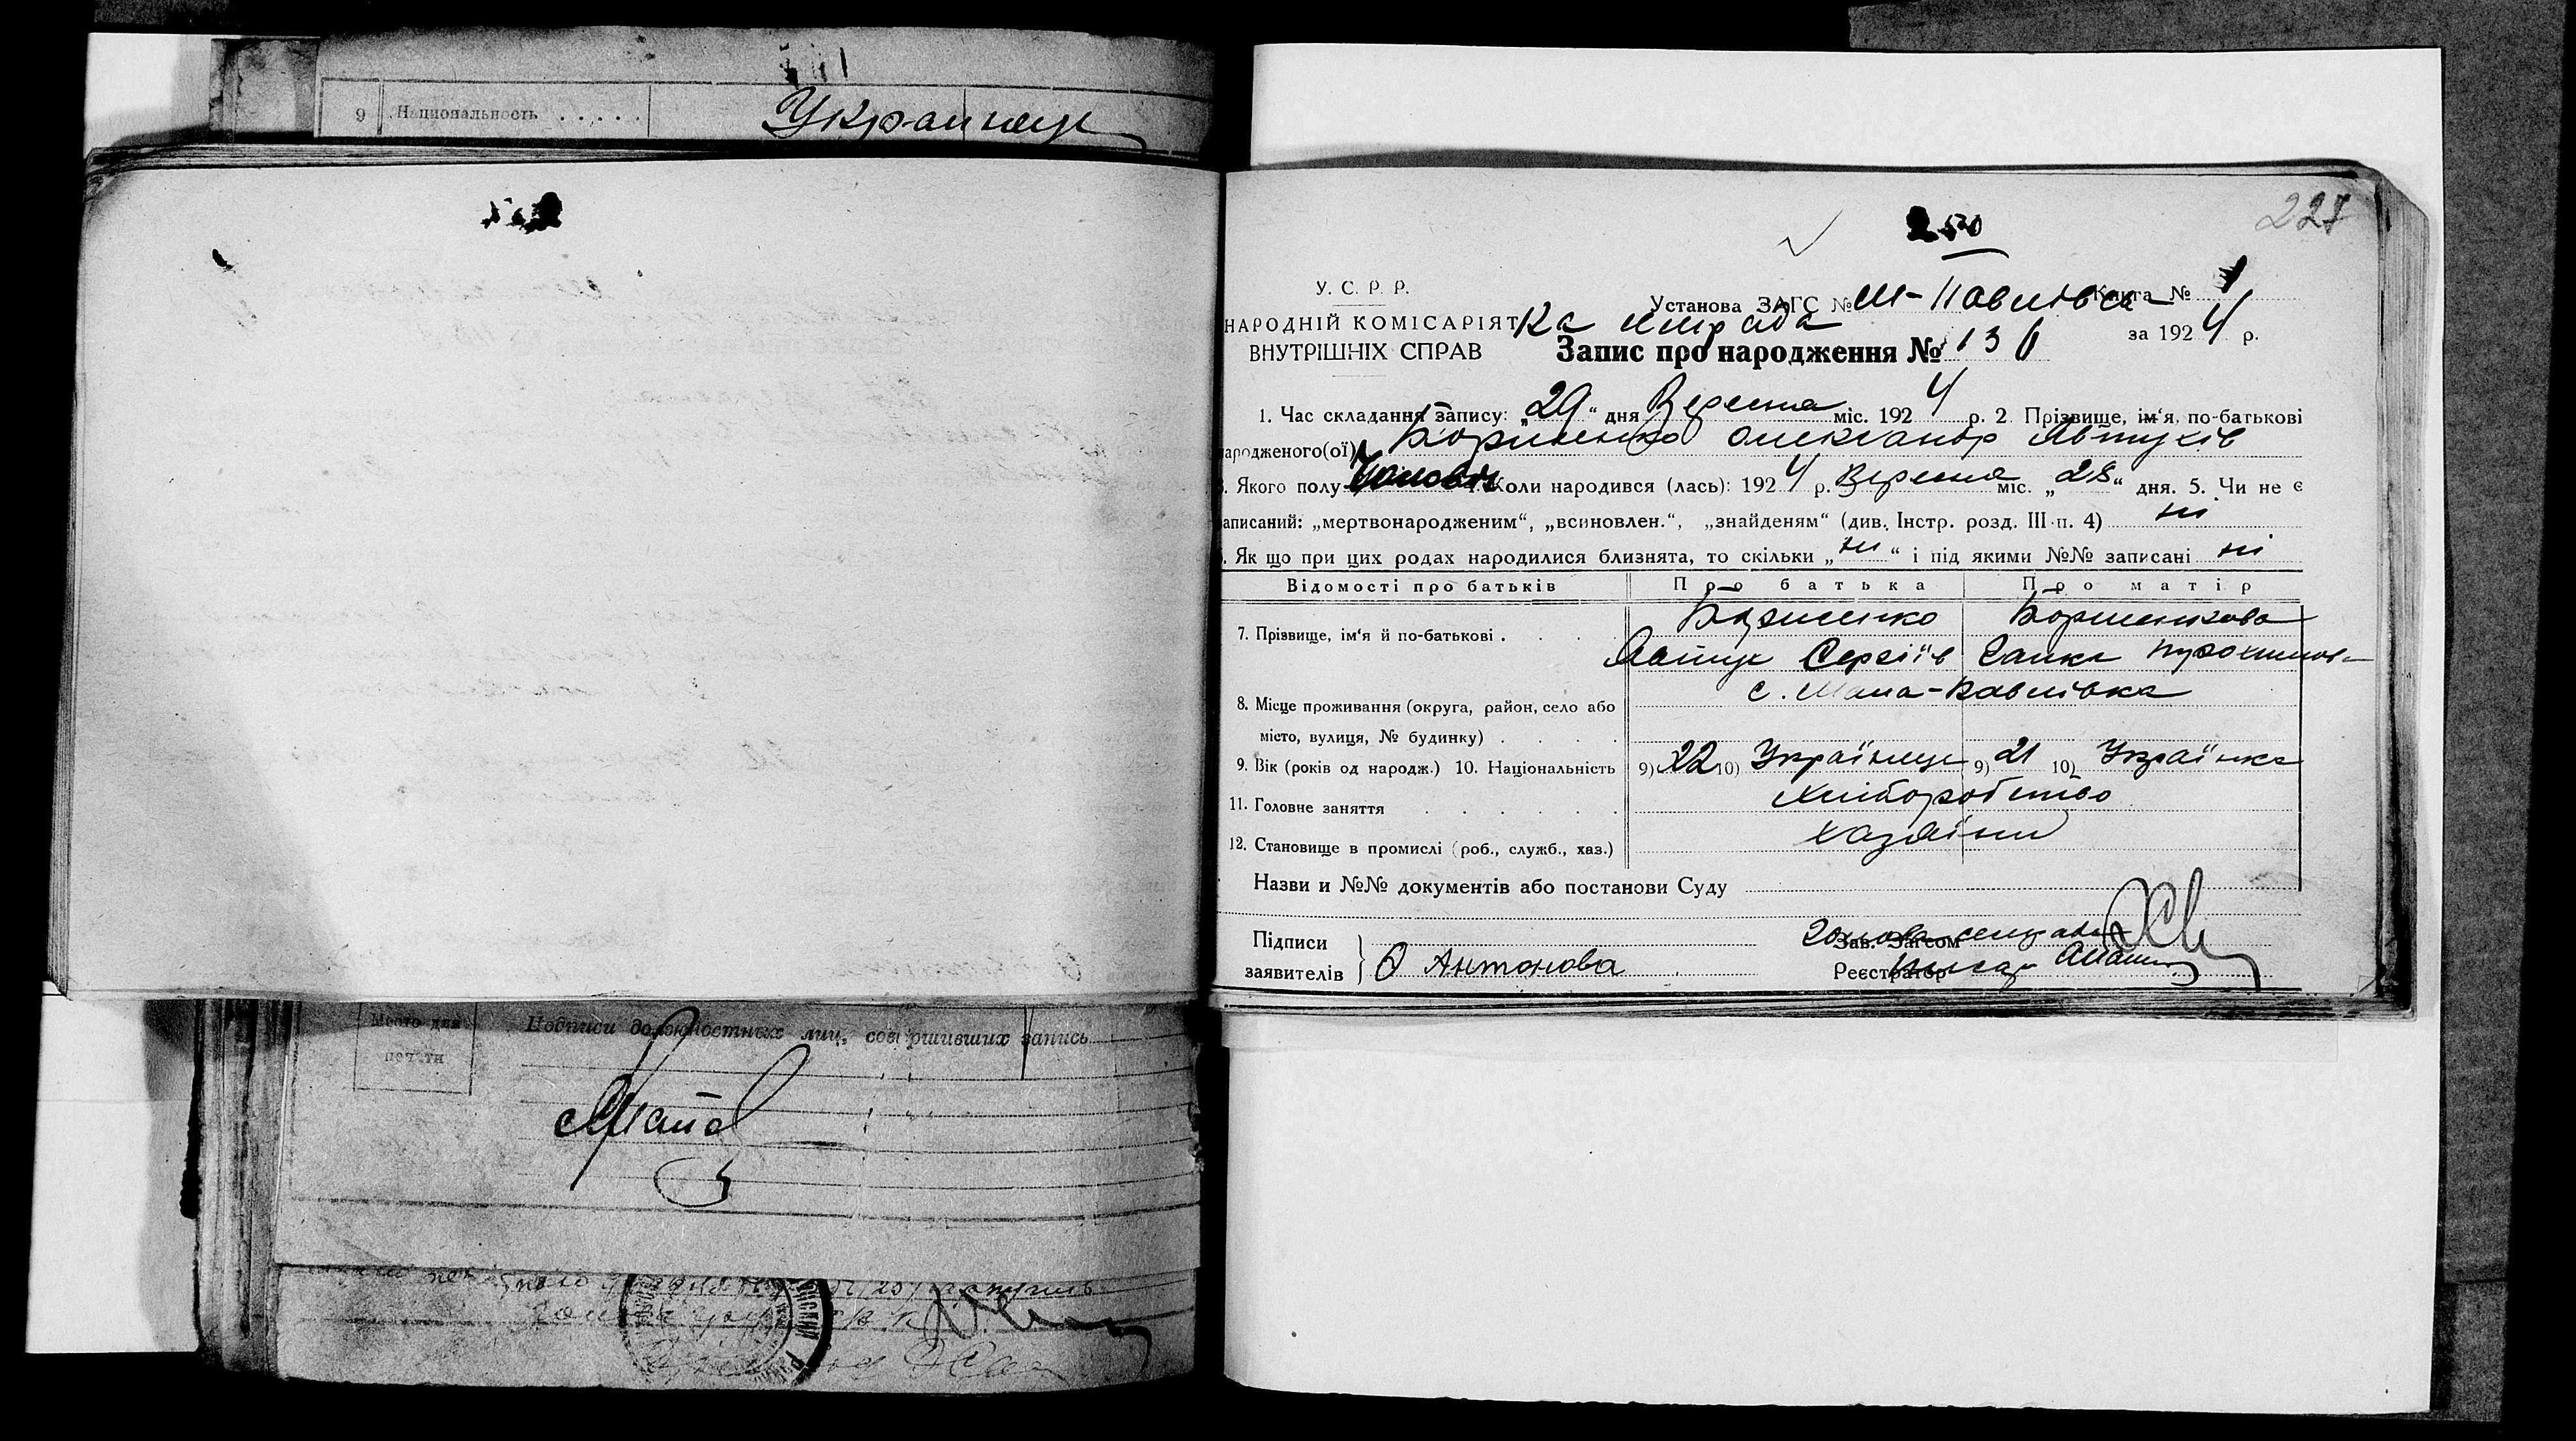 9 Национальность . . . . . Украинец
250
227
У. С. Р. Р.
Установа ЗАГС № М-Павлівсь Книга № 1
НАРОДНІЙ КОМІСАРІЯТ ка
за 1924 р.
ВНУТРІШНІХ СПРАВ
Запис про народження № 136
1. Час складання запису: „29“ дня Вересня міс. 1924 р. 2. Прізвище, ім'я, по-батькові
ародженого(ої) Борисенко Олександр Явтухів
. Якого полу Чоловіч 4. Коли народився (лась): 1924 р. Вересня міс. „28“ дня. 5. Чи не є
аписаний: „мертвонародженим“, „всиновлен.“, „знайденям“ (див. Інстр. розд. III п. 4) ні
. Як що при цих родах народилися близнята, то скільки „ні“ і під якими №№ записані ні
Відомості про батьків Про батька Про матір
7. Прізвище, ім'я й по-батькові . Борисенко Борисенкова
Явтух Сергіїв Ганка
8. Місце проживання (округа, район, село або с. Мала-Павлівка
місто, вулиця, № будинку) .
9. Вік (років од народж.) 10. Національність 9) 22 10) Українець 9) 21 10) Українка
11. Головне заняття Хліборобство
12. Становище в промислі (роб., служб., хаз.) хазяїни
Назви и №№ документів або постанови Суду
Підписи Голова сельради
Зав. Загсом
заявителів О Антонова Реєстратор
Место для печати
Подписи должностных лиц, совершивших запись